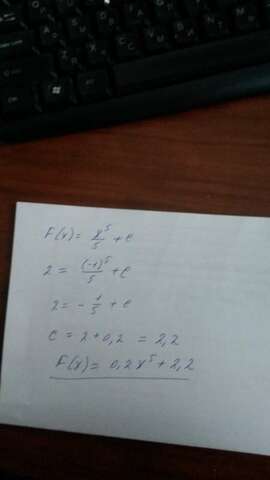 F(x) = x⁵/5 + c
2 = (-1)⁵/5 + c
2 = - 1/5 + c
c = 2 + 0,2 = 2,2
F(x) = 0,2x⁵ + 2,2